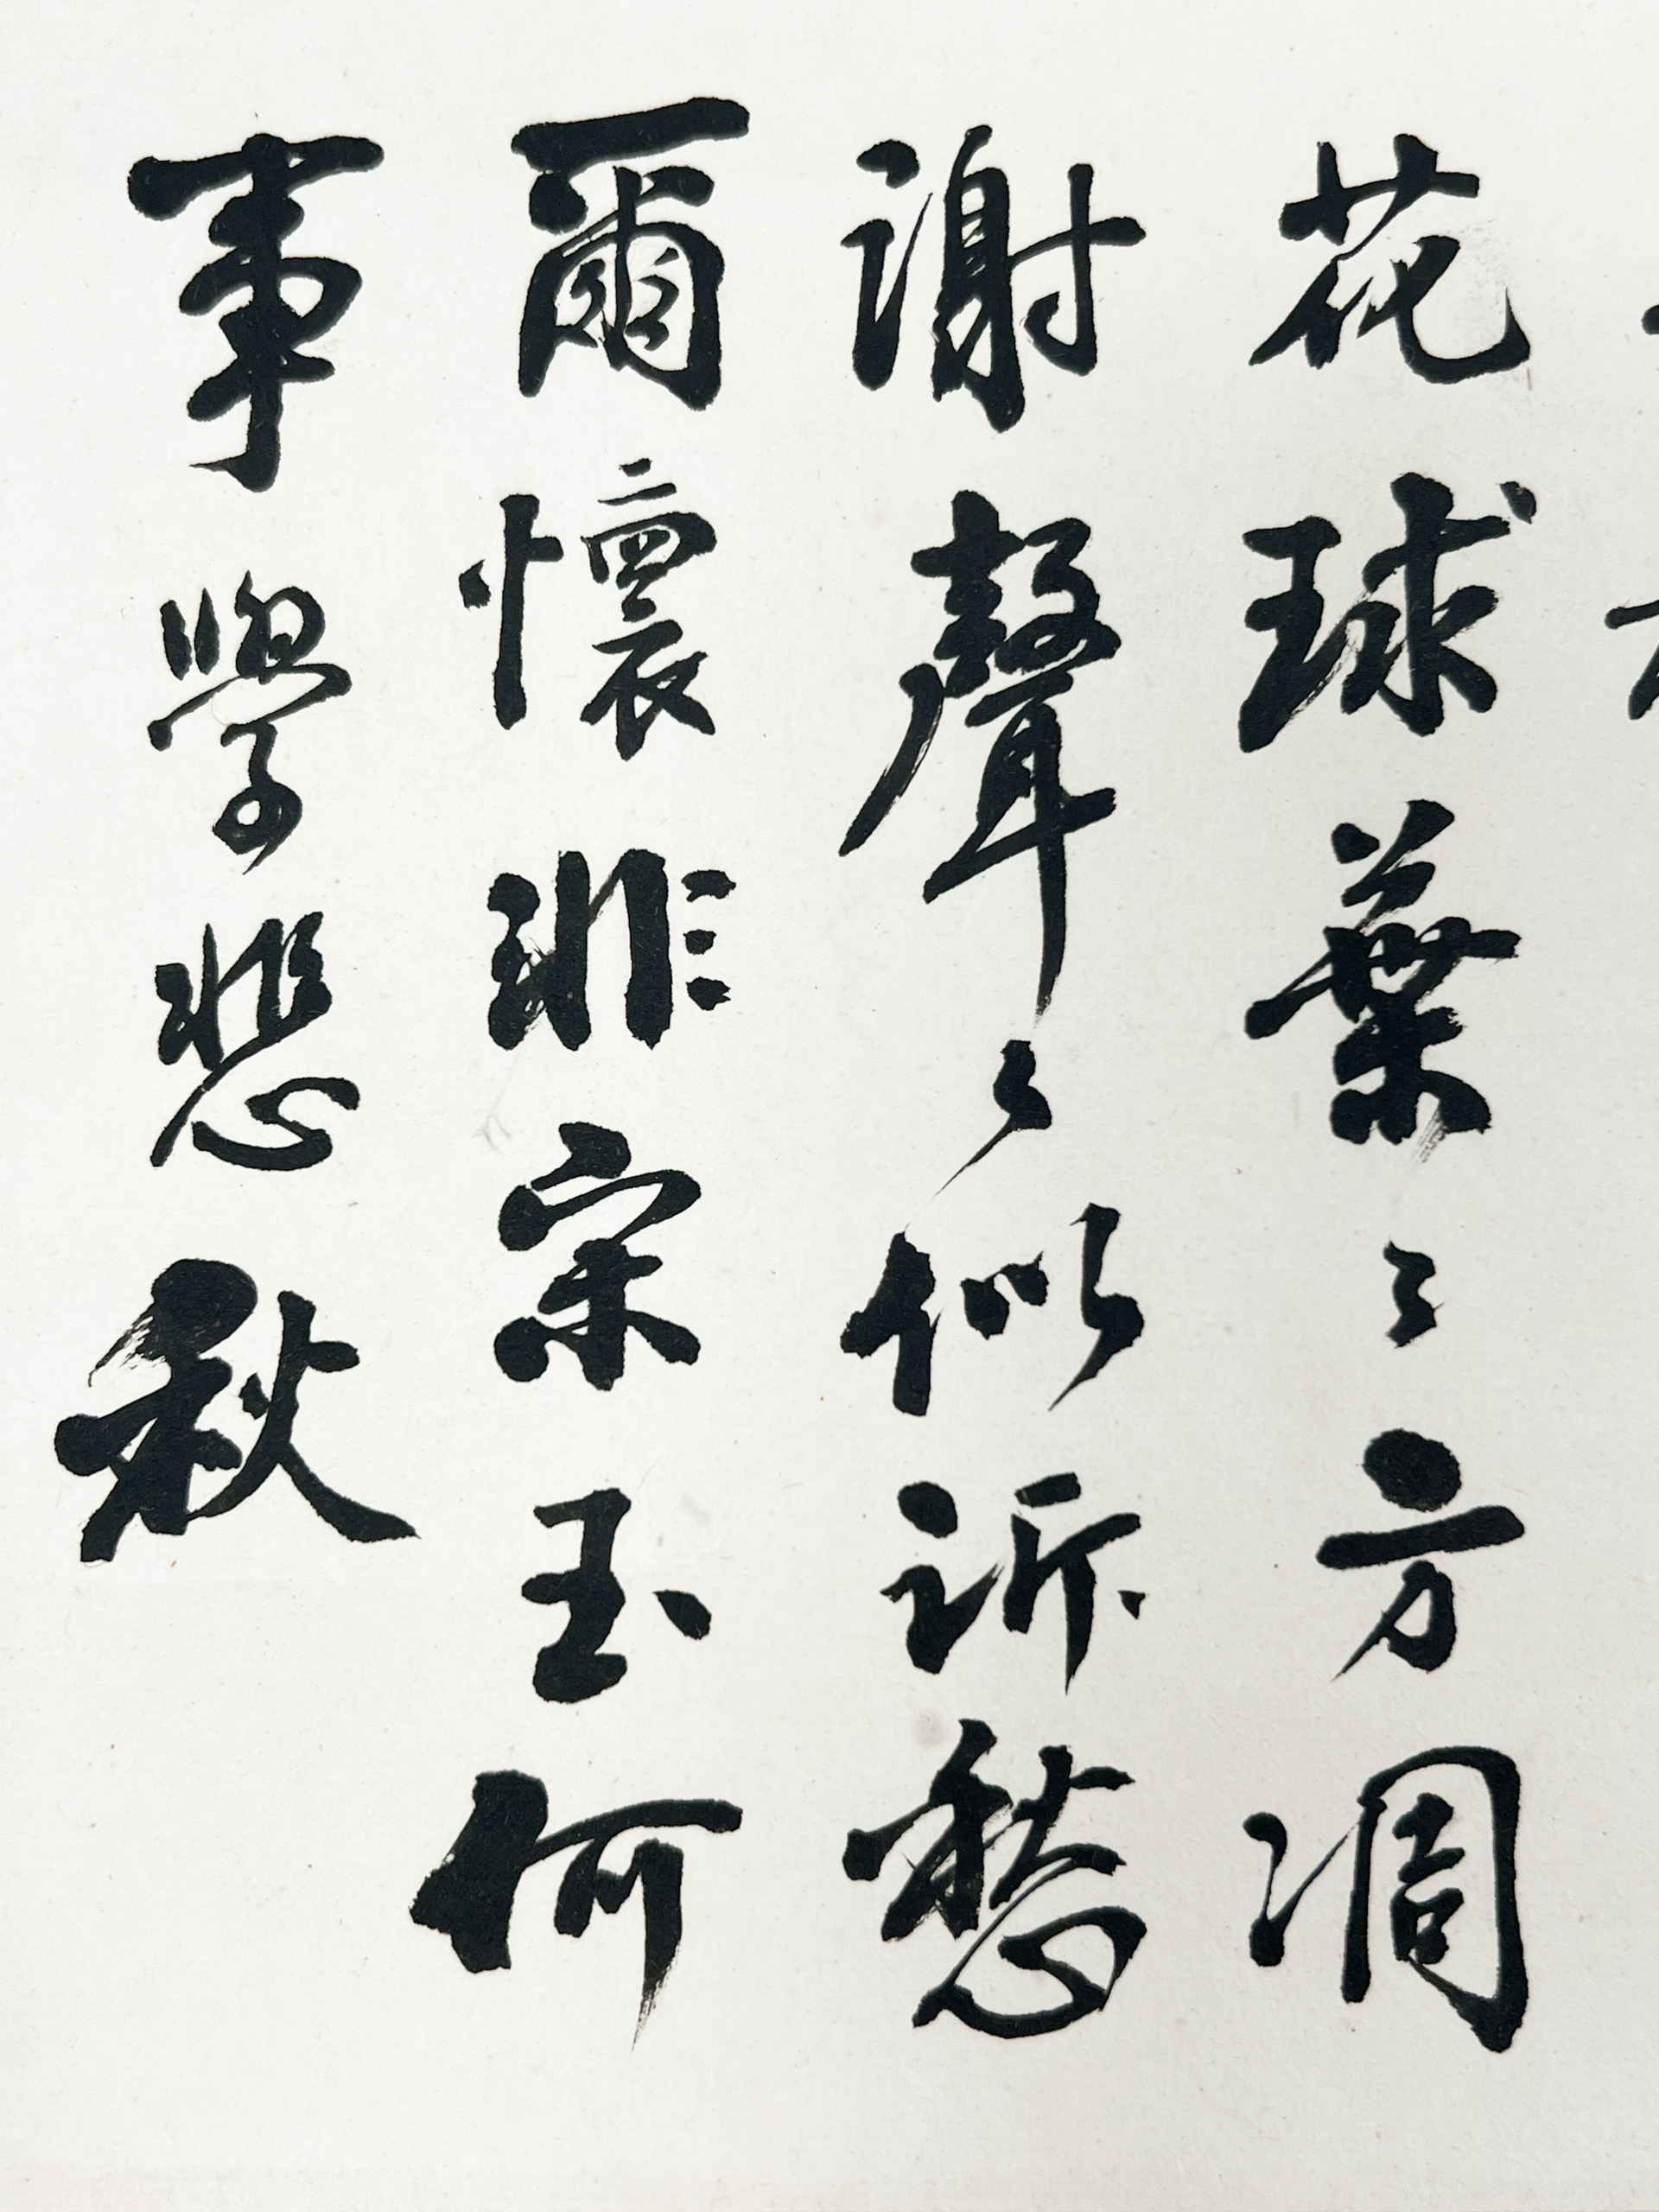 花球葉〻方凋
謝聲〻似訴愁
爾懷非宋玉何
事學悲秋